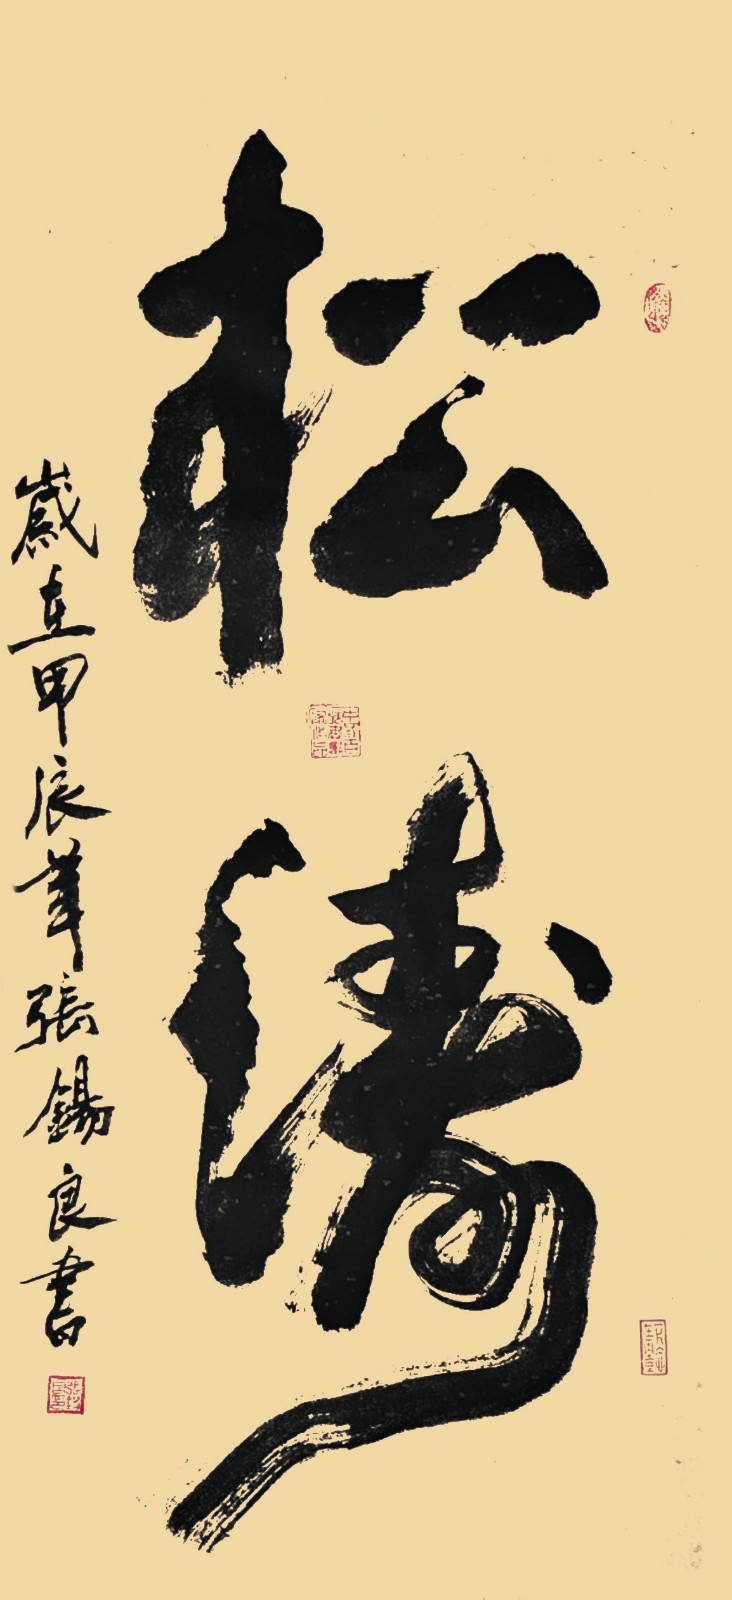 松
濤
歲在甲辰年張錫良書